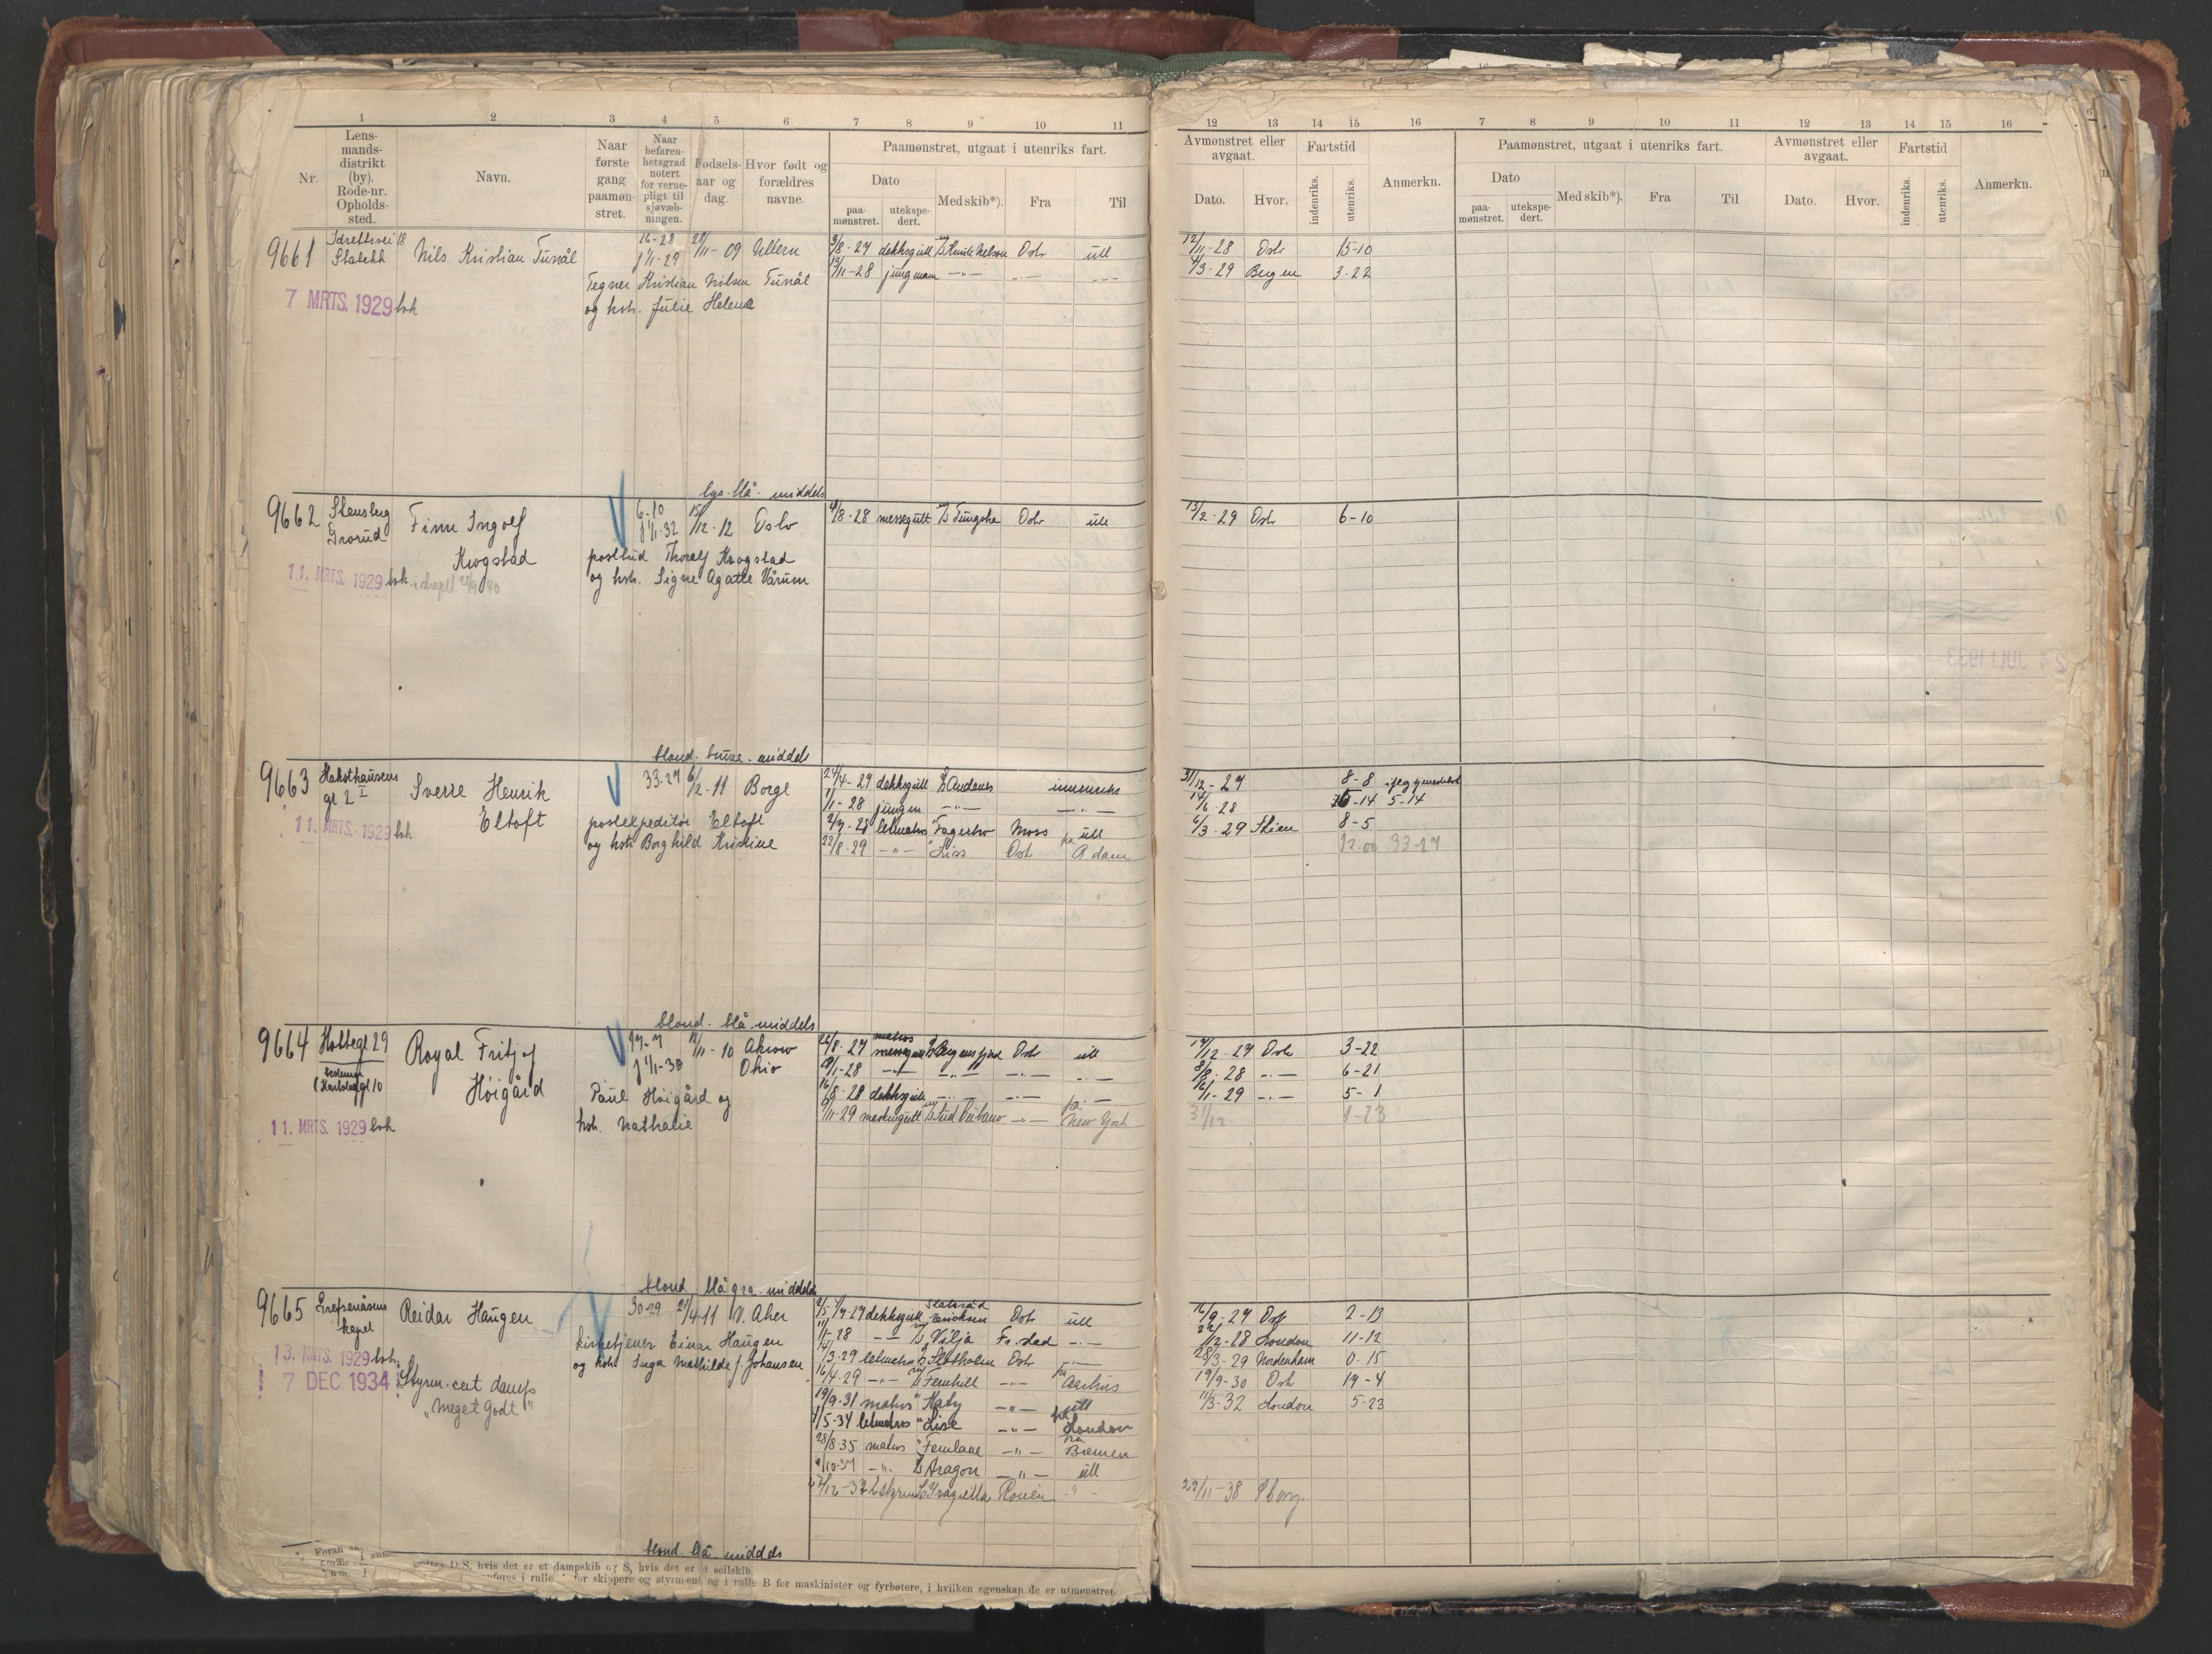 1 2 3 4 5 6 7 8 9 10 11
Nr.
Lens-
mands-
distrikt
(by).
Rode-nr.
Opholds-
sted.
Navn.
Naar
første
gang
paamøn-
stret.
Naar
befaren-
hetsgrad
notert
for verne-
pligt til
sjøvæb-
ningen.
Fødsels-
aar og
dag.
Hvor født og
forældres
navne.
Paamønstret, utgaat i utenriks fart.
Dato
paa-
mønstret.
utekspe-
dert.
Med skib*).
Fra
Til
12 13 14 15 16 7 8 9 10 11 12 13 14 15 16
Avmønstret eller
avgaat.
Dato. Hvor.
Fartstid
indenriks.
utenriks.
Anmerkn.
Paamønstret, utgaat i utenriks fart.
Dato
paa-
mønstret.
utekspe-
dert.
Med skib*).
Fra
Til
Avmønstret eller
avgaat.
Dato. Hvor.
Fartstid
indenriks.
utenriks.
Anmerkn.
9661 Idrettsvei 18
Stabekk
Nils Kristian Tunål
16-28
1/1-29
28/11-09 Ullern
Tegner Kristian Nilsen Tunål
og hstr. Julie Helena
7 MRTS. 1929 bok
3/8-27 dekksgutt Knute Nelson Oslo utl
13/11-28 jungmann -"- -"- -"-
12/11-28 Oslo 15-10
4/3-29 Bergen 3-22
lys. blå. middels
9662 Stensberg
Grorud
Finn Ingolf
Krogstad
6-10
1/1-32
15/12-12 Oslo
postbud Thoralf Krogstad
og hstr. Signe Agathe Vårum
11. MRTS. 1929 bok
4/8-28 messegutt Tungsha Oslo utl
13/2-29 Oslo 6-10
blond. brune. middels
9663 Haksthausens
gt 2 I
Sverre Henrik
Eltoft
33-27 6/2-11 Borge
postekspeditør Eltoft
og hstr Borghild Kristine
11. MRTS. 1929 bok
27/4-27 dekksgutt Andenes innenriks
1/1-28 jungm -"- -"-
2/7-28 letmatros Fagerbro Moss utl
22/8-29 -"- Liss Oslo fra Adam
31/12-27 8-8
14/6-28 5-14 5-14
6/3-29 Skien 8-5
12.00 33-27
blond. blå. middels
9664 Holtegt 29
Royal Fritjof
Høigård
17-7
1/1-30
12/11-10 Akron
Ohio
Paul Høigård og
hstr. Nathalie
11. MRTS. 1929 bok
26/8-27 messegutt Bergensfjord Oslo utl
9/1-28 -"- -"- -"- -"-
16/8-28 dekksgutt -"- -"- -"-
9/11-29 maskingutt Sud Cubano -"- fra New York
17/12-27 Oslo 3-22
8/8-28 -"- 6-21
16/1-29 -"- 5-1
31/12- 1-23
blond. blågrå. middels
9665 Grefsenåsens
kapel
Reidar Haugen
30-29 21/4-11 V. Aker
kirketjener Einar Haugen
og hstr Inga Mathilde f. Johansen
13. MRTS. 1929 bok
7 DEC. 1934
Styrm. cert damps
"Meget Godt"
2/5-7/7-27 dekksgutt Statsråd Ericksen Oslo utl
11/1-28 -"- Vilja Fr.stad -"-
14/3-29 letmatros Slotholm Oslo -"-
16/4-29 -"- Fernhill -"- fra Aarhus
19/9-31 matros " Haby -"- utl
1/5-34 letmatros " Lise -"- fra London
28/8-35 matros " Fernlane -"- fra Bremen
/10-37 -"- Aragon -"- utl
/12-37 2 styrm Gragiella Rouen -"-
16/9-27 Oslo 2-13
22/12-28 London 11-12
28/3-29 Nordenham 0-15
19/9-30 Oslo 19-4
11/3-32 London 5-23
29/11-38 Sborg.
blond. blå. middels
D S, hvis det er et dampskib og S, hvis det er et seilskib.
for skippere og styrmænd og i rulle B for maskinister og fyrbøtere, i hvilken egenskap de er utmønstret.